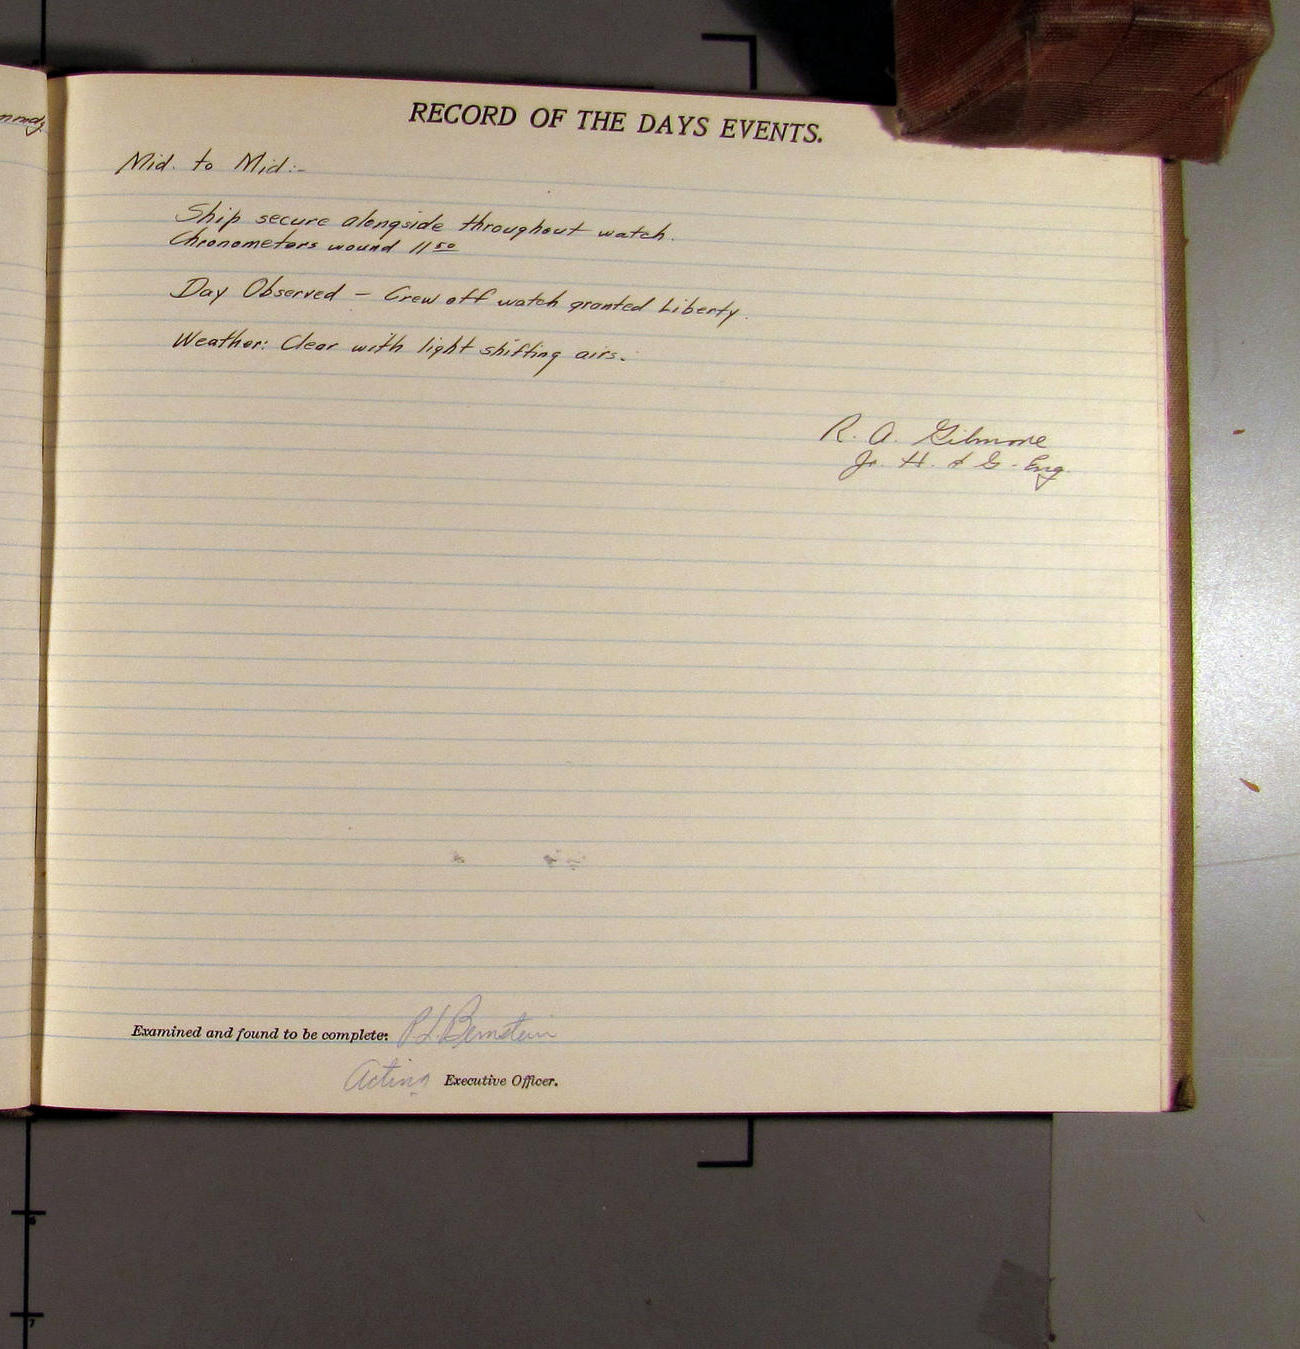 RECORD OF THE DAYS EVENTS.
Mid. to Mid:-
Ship secure alongside throughout watch.
Chronometers wound 11 50
Day Observed - Crew off watch granted Liberty.
Weather: Clear with light shifting airs.
R. A. Gilmore
Jr. H. & G. Eng.
Examined and found to be complete: P.L. Bernstein
Acting Executive Officer.
6
7